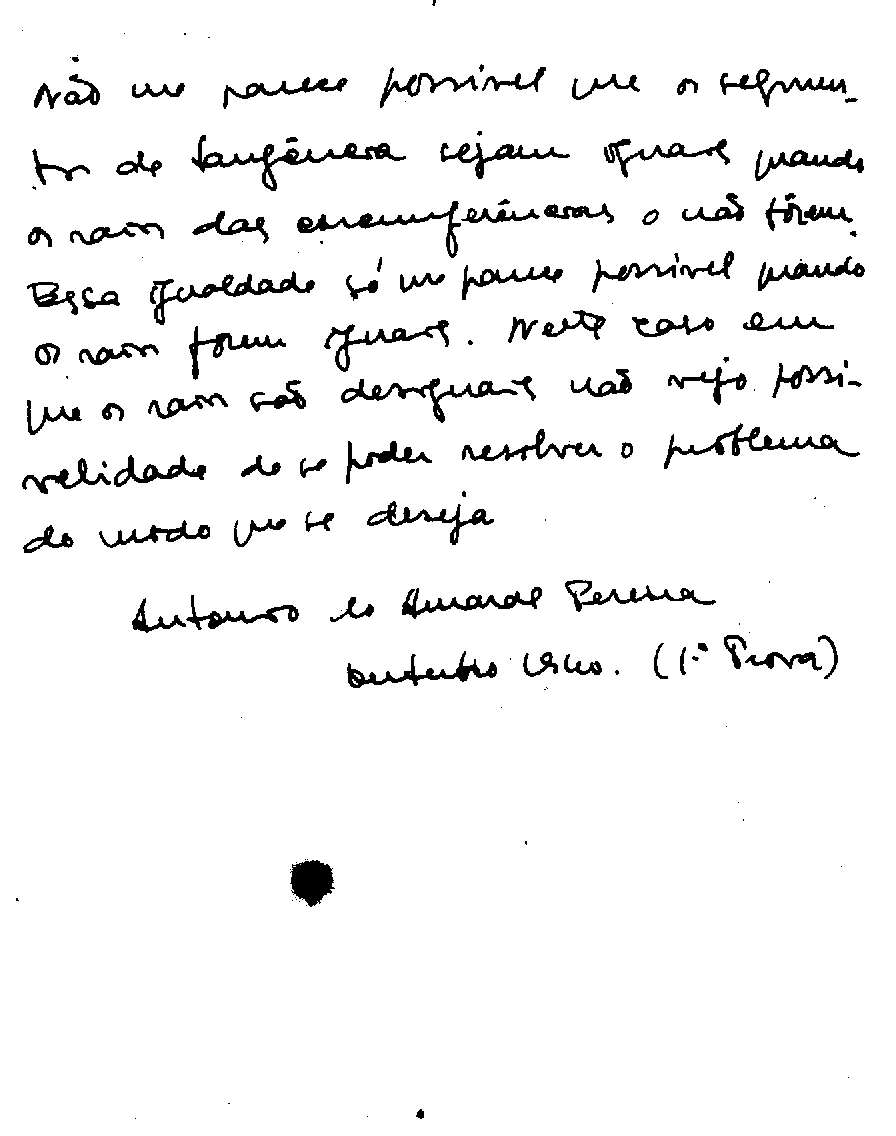 Não me parece possivel que os segmen-
tos de tangência sejam iguais quando
os raios das circumferências o não fôrem.
Essa igualdade só me parece possivel quando
os raios forem iguais. Neste caso em
que os raios são desiguais não vejo possi-
velidade de se poder resolver o problema
do modo que se deseja
Antonio do Amaral Pereira
(1.ª Prova)